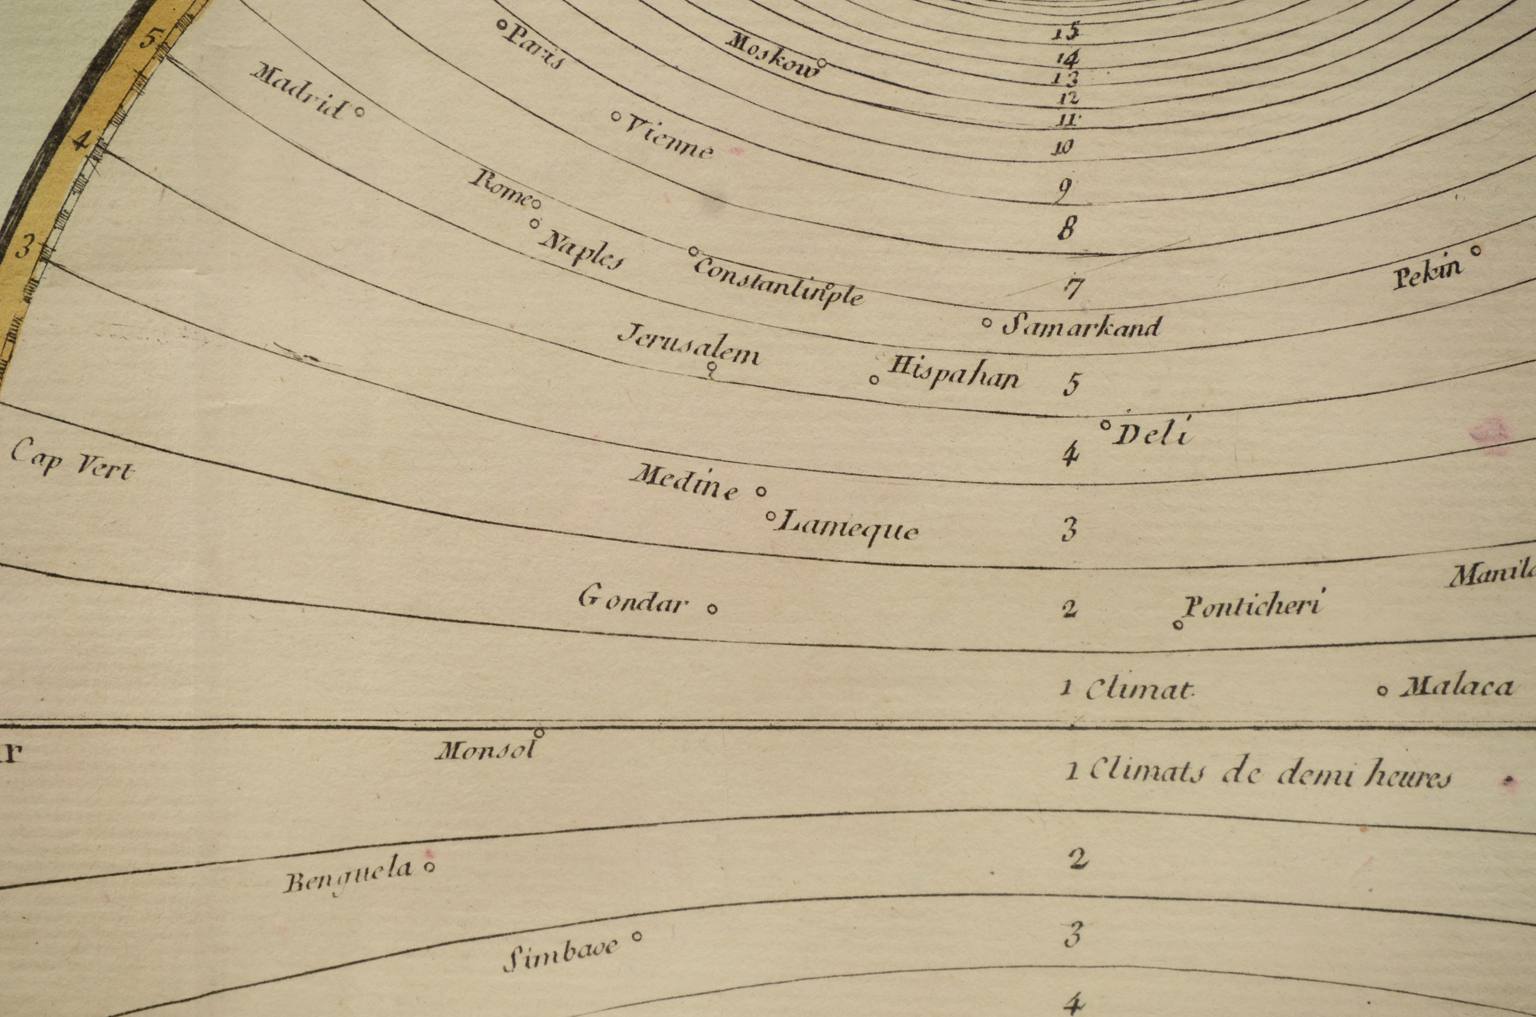 15
5
Paris
Moskow
14
13
Madrid
12
11
4
Vienne
10
9
Rome
8
3
Naples
Constantinple
7
Pekin
Samarkand
Jerusalem
Hispahan
5
Deli
4
Cap Vert
Medine
Lameque
3
Manila
Gondar
2
Ponticheri
1 Climat.
Malaca
r
Monsol
1 Climats de demi heures
2
Benguela
3
Simbaoe
4